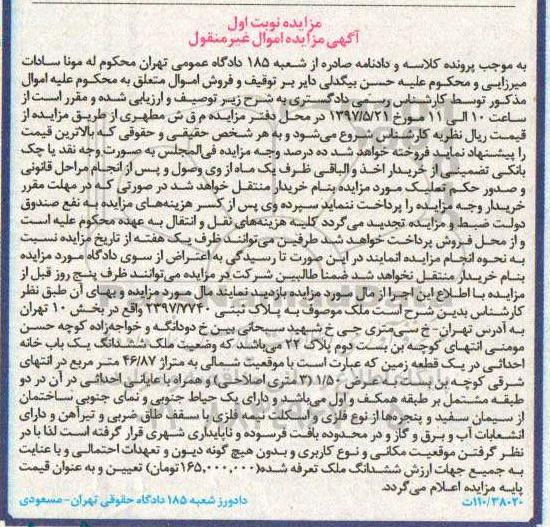 مزایده نوبت اول
آگهی مزایده اموال غیر منقول
به موجب پرونده کلاسه و دادنامه صادره از شعبه ۱۸۵ دادگاه عمومی تهران محکوم له مونا سادات
میرزایی و محکوم علیه حسن بیگدلی دایر بر توقیف و فروش اموال متعلق به محکوم علیه اموال
مذکور توسط کارشناس رسمی دادگستری به شرح زیر توصیف و ارزیابی شده و مقرر است از
ساعت ۱۰ الی ۱۱ مورخ ۱۳۹۷/۵/۲۱ در محل دفتر مزایده م ق ش مطهری از طریق مزایده از
قیمت ریال نظریه کارشناسی شروع می‌شود و به هر شخص حقیقی و حقوقی که بالاترین قیمت
را پیشنهاد نماید فروخته خواهد شد ده درصد وجه مزایده فی‌المجلس به صورت وجه نقد یا چک
بانکی تضمینی از خریدار اخذ و الباقی ظرف یک ماه از وی وصول و پس از انجام مراحل قانونی
و صدور حکم تملیک مورد مزایده بنام خریدار منتقل خواهد شد در صورتی که در مهلت مقرر
خریدار وجه مزایده را پرداخت ننماید سپرده وی پس از کسر هزینه‌های مزایده به نفع صندوق
دولت ضبط و مزایده تجدید می‌گردد کلیه هزینه‌های نقل و انتقال به عهده محکوم علیه است
و از محل فروش پرداخت خواهد شد طرفین می‌توانند ظرف یک هفته از تاریخ مزایده نسبت
به نحوه انجام مزایده انمایند در این صورت تا رسیدگی به اعتراض از سوی دادگاه مورد مزایده
بنام خریدار منتقل نخواهد شد ضمنا طالبین شرکت در مزایده می‌توانند ظرف پنج روز قبل از
مزایده با اطلاع این اجرا از مال مورد مزایده بازدید نمایند مال مورد مزایده و بهای آن طبق نظر
کارشناس بدین شرح است ملک موصوف به پلاک ثبتی ۲۳۹۷/۷۷۴۰ واقع در بخش ۱۰ تهران
به آدرس تهران-خ سی‌متری جی خ شهید سبحانی بین خ دودانگه و خواجه‌زاده کوچه حسن
مومنی انتهای کوچه بن بست دوم پلاک ۲۲ می‌باشد که وضعیت ملک ششدانگ یک باب خانه
احداثی در یک قطعه زمین که عبارت است با موقعیت شمالی به متراژ ۴۶/۸۷ متر مربع در انتهای
شرقی کوچه بن بست با عرض ۱/۵۰ (۳ متری اصلاحی) و همراه با عیانی احداثی در آن در دو
طبقه مشتمل بر طبقه همکف و اول می‌باشد و دارای یک حیاط جنوبی و نمای جنوبی ساختمان
از سیمان سفید و پنجره‌ها از نوع فلزی و اسکلت نیمه فلزی با سقف طاق ضربی و تیرآهن و دارای
انشعابات آب و برق و گاز و در محدوده بافت فرسوده و ناپایداری شهری قرار گرفته است لذا با در
نظر گرفتن موقعیت مکانی و نوع کاربری و بدون هیچ گونه دیون و تعهدات احتمالی و با عنایت
به جمیع جهات ارزش ششدانگ ملک تعرفه شده (۱۶۵,۰۰۰,۰۰۰ تومان) تعیین و به عنوان قیمت
پایه مزایده اعلام می‌گردد.
۱۱۰/۳۸۰۲۰ت دادورز شعبه ۱۸۵ دادگاه حقوقی تهران-مسعودی